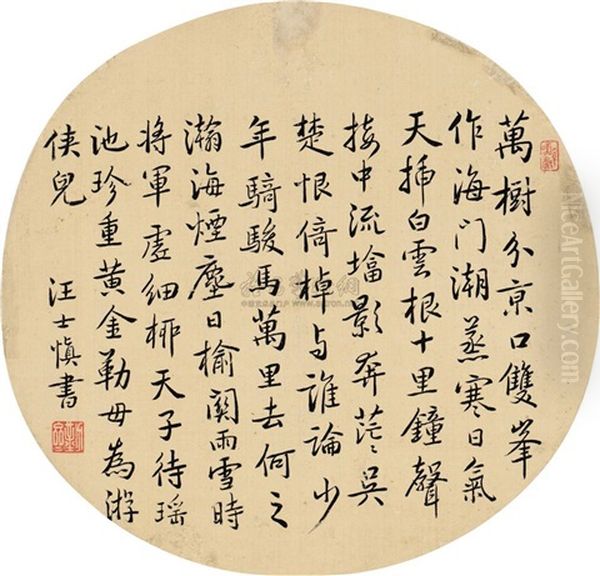 萬樹分京口雙峯
作海門潮蒸寒日氣
天插白雲根十里鐘聲
接中流墖影奔茫茫吳
楚恨倚棹与誰論少
年騎駿馬萬里去何之
瀚海煙塵日榆關雨雪時
將軍虛細栁天子待瑶
池珍重黄金勒毋為游
俠兒
汪士慎書
NiceArtGallery.com